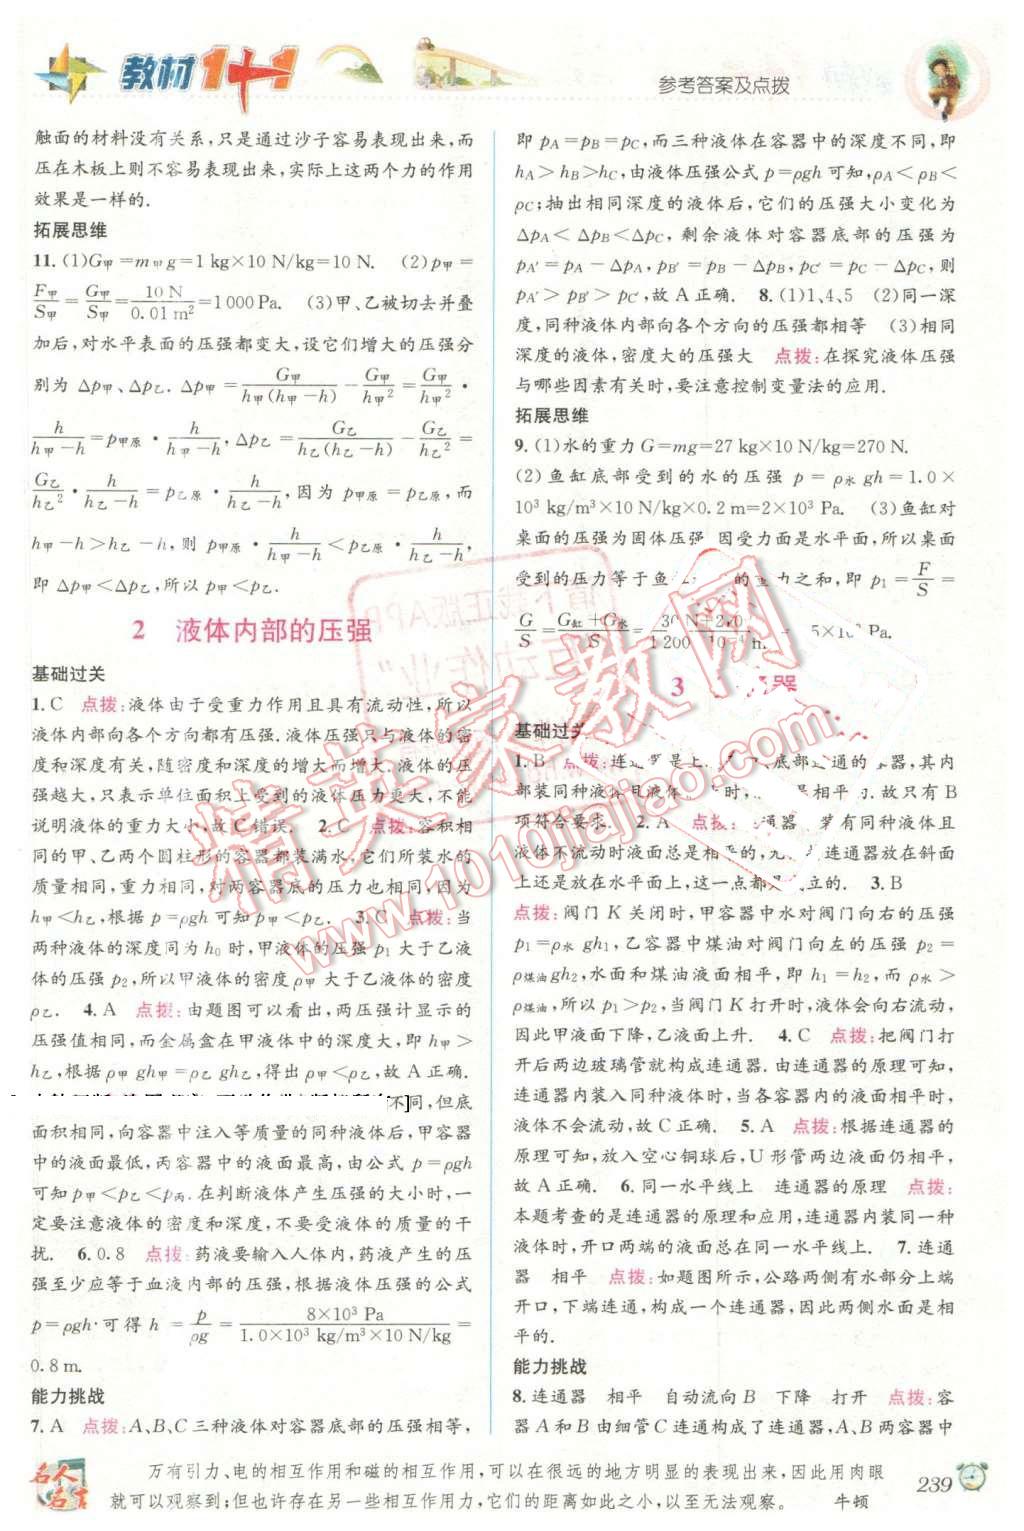 教材1+1
参考答案及点拨
触面的材料没有关系,只是通过沙子容易表现出来,而
压在木板上则不容易表现出来,实际上这两个力的作用
效果是一样的.
拓展思维
11. (1)G甲=m甲g=1 kg×10 N/kg=10 N. (2)p甲=
F甲/S甲=G甲/S甲=10 N/0.01 m²=1 000 Pa. (3)甲、乙被切去并叠
加后,对水平表面的压强都变大,设它们增大的压强分
别为 Δp甲、Δp乙. Δp甲=G甲/h甲(h甲-h)-G甲/h甲²=G甲/h甲²·
h/h甲-h=p甲原·h/h甲-h,Δp乙=G乙/h乙(h乙-h)-G乙/h乙²=
G乙/h乙²·h/h乙-h=p乙原·h/h乙-h,因为 p甲原=p乙原,而
h甲-h>h乙-h,则 p甲原·h/h甲-h<p乙原·h/h乙-h,
即 Δp甲<Δp乙,所以 p甲<p乙.
2 液体内部的压强
基础过关
1. C 点拨:液体由于受重力作用且具有流动性,所以
液体内部向各个方向都有压强.液体压强只与液体的密
度和深度有关,随密度和深度的增大而增大.液体的压
强越大,只表示单位面积上受到的液体压力更大,不能
说明液体的重力大小,故 C 错误. 2. C 点拨:容积相
同的甲、乙两个圆柱形的容器都装满水,它们所装水的
质量相同,重力相同,对两容器底的压力也相同,因为
h甲<h乙,根据 p=ρgh 可知 p甲<p乙. 3. C 点拨:当
两种液体的深度同为 h₀ 时,甲液体的压强 p₁ 大于乙液
体的压强 p₂,所以甲液体的密度 ρ甲 大于乙液体的密度
ρ乙. 4. A 点拨:由题图可以看出,两压强计显示的
压强值相同,而金属盒在甲液体中的深度大,即 h甲>
h乙,根据 ρ甲gh甲=ρ乙gh乙,得出 ρ甲<ρ乙,故 A 正确.
不同,但底
面积相同,向容器中注入等质量的同种液体后,甲容器
中的液面最低,丙容器中的液面最高,由公式 p=ρgh
可知 p甲<p乙<p丙.在判断液体产生压强的大小时,一
定要注意液体的密度和深度,不要受液体的质量的干
扰. 6. 0.8 点拨:药液要输入人体内,药液产生的压
强至少应等于血液内部的压强,根据液体压强的公式
p=ρgh·可得 h=p/ρg=8×10³ Pa/1.0×10³ kg/m³×10 N/kg=
0.8 m.
能力挑战
7. A 点拨:A、B、C 三种液体对容器底部的压强相等,
即 pA=pB=pC,而三种液体在容器中的深度不同,即
hA>hB>hC,由液体压强公式 p=ρgh 可知,ρA<ρB<
ρC;抽出相同深度的液体后,它们的压强大小变化为
ΔpA<ΔpB<ΔpC,剩余液体对容器底部的压强为
pA′=pA-ΔpA,pB′=pB-ΔpB,pC′=pC-ΔpC,则
pA′>pB′>pC′,故 A 正确. 8. (1)1、4、5 (2)同一深
度,同种液体内部向各个方向的压强都相等 (3)相同
深度的液体,密度大的压强大 点拨:在探究液体压强
与哪些因素有关时,要注意控制变量法的应用.
拓展思维
9. (1)水的重力 G=mg=27 kg×10 N/kg=270 N.
(2)鱼缸底部受到的水的压强 p=ρ水gh=1.0×
10³ kg/m³×10 N/kg×0.2 m=2×10³ Pa. (3)鱼缸对
桌面的压强为固体压强 因受力面是水平面,所以桌面
受到的压力等于鱼缸 的重力之和,即 p₁=F/S=
G/S=G缸+G水/S=
3 器
基础过关
1. B 点拨:连通器是上 底部连通的容器,其内
部装同种液体且液体 时, 是相平的.故只有 B
项符合要求. 2. A 点拨: 通器 有同种液体且
液体不流动时液面总是相平的,无 连通器放在斜面
上还是放在水平面上,这一点都是 立的. 3. B
点拨:阀门 K 关闭时,甲容器中水对阀门向右的压强
p₁=ρ水gh₁,乙容器中煤油对阀门向左的压强 p₂=
ρ煤油gh₂,水面和煤油液面相平,即 h₁=h₂,而 ρ水>
ρ煤油,所以 p₁>p₂,当阀门 K 打开时,液体会向右流动,
因此甲液面下降,乙液面上升. 4. C 点拨:把阀门打
开后两边玻璃管就构成连通器.由连通器的原理可知,
连通器内装入同种液体时,当各容器内的液面相平时,
液体不会流动,故 C 正确. 5. A 点拨:根据连通器的
原理可知,放入空心铜球后,U 形管两边液面仍相平,
故 A 正确. 6. 同一水平线上 连通器的原理 点拨:
本题考查的是连通器的原理和应用,连通器内装同一种
液体时,开口两端的液面总在同一水平线上. 7. 连通
器 相平 点拨:如题图所示,公路两侧有水部分上端
开口,下端连通,构成一个连通器,因此两侧水面是相
平的.
能力挑战
8. 连通器 相平 自动流向 B 下降 打开 点拨:容
器 A 和 B 由细管 C 连通构成了连通器,A、B 两容器中
名人名言
万有引力、电的相互作用和磁的相互作用,可以在很远的地方明显的表现出来,因此用肉眼
就可以观察到;但也许存在另一些相互作用力,它们的距离如此之小,以至无法观察。 牛顿
239
精英家教网
www.1010jiajiao.com